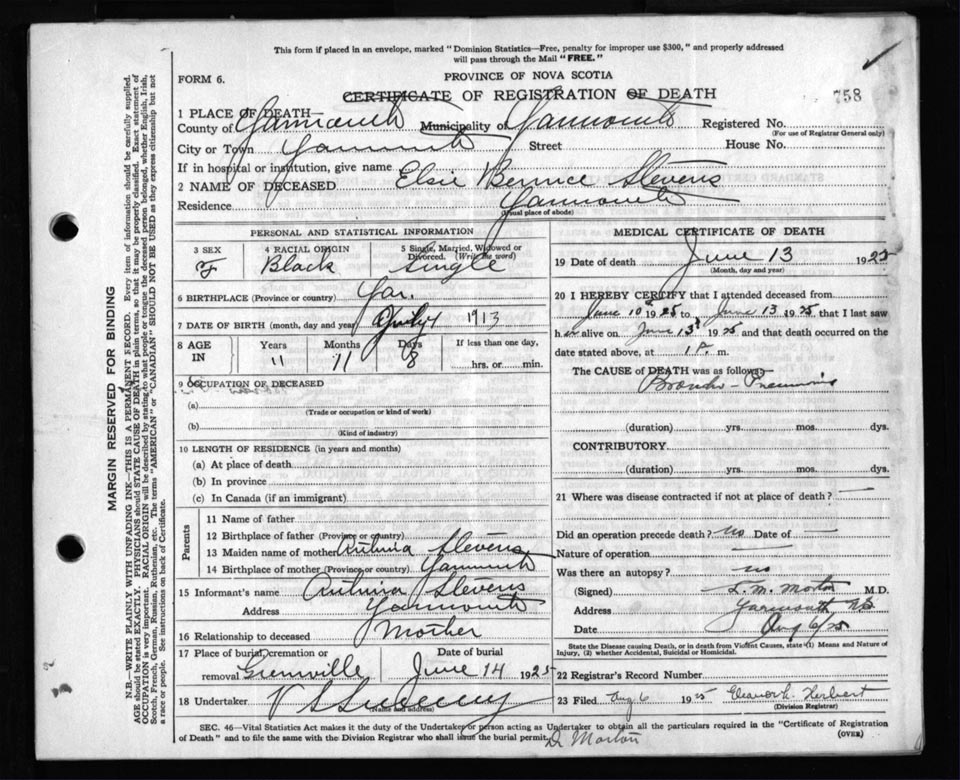 This form if placed in an envelope, marked "Dominion Statistics—Free, penalty for improper use $300," and properly addressed
will pass through the Mail "FREE."
FORM 6.
PROVINCE OF NOVA SCOTIA
CERTIFICATE OF REGISTRATION OF DEATH
758
1 PLACE OF DEATH—
County of Yarmouth Municipality of Yarmouth Registered No.
(For use of Registrar General only)
City or Town Yarmouth Street House No.
If in hospital or institution, give name
2 NAME OF DECEASED Elsie Bernice Stevens
Residence Yarmouth
(Usual place of abode)
PERSONAL AND STATISTICAL INFORMATION
3 SEX F
4 RACIAL ORIGIN Black
5 Single, Married, Widowed or Divorced. (Write the word) single
6 BIRTHPLACE (Province or country) Yar.
7 DATE OF BIRTH (month, day and year) 1913
8 AGE IN Years 11 Months 11 Days 8 If less than one day, hrs. or min.
9 OCCUPATION OF DECEASED
(a)
(Trade or occupation or kind of work)
(b)
(Kind of industry)
10 LENGTH OF RESIDENCE (in years and months)
(a) At place of death
(b) In province
(c) In Canada (if an immigrant)
Parents
11 Name of father
12 Birthplace of father (Province or country)
13 Maiden name of mother Stevens
14 Birthplace of mother (Province or country) Yarmouth
15 Informant's name Stevens
Address Yarmouth
16 Relationship to deceased Mother
17 Place of burial, cremation or removal Greenville Date of burial June 14 1925
18 Undertaker V S Sweeny
(Name and address)
MEDICAL CERTIFICATE OF DEATH
19 Date of death June 13 1925
(Month, day and year)
20 I HEREBY CERTIFY that I attended deceased from
June 10 1925 to June 13 1925, that I last saw
her alive on June 13 1925 and that death occurred on the
date stated above, at 1 P. m.
The CAUSE of DEATH was as follows—
Broncho-Pneumonia
(duration) yrs. mos. dys.
CONTRIBUTORY
(duration) yrs. mos. dys.
21 Where was disease contracted if not at place of death?
Did an operation precede death? no Date of
Nature of operation
Was there an autopsy? no
(Signed) M. Morton M.D.
Address Yarmouth NS
Date Aug 6/25
State the Disease causing Death, or in death from Violent Causes, state (1) Means and Nature of
Injury, (2) whether Accidental, Suicidal or Homicidal.
22 Registrar's Record Number
23 Filed Aug 6 1925 Eleanor L. Herbert
(Division Registrar)
SEC. 46—Vital Statistics Act makes it the duty of the Undertaker or person acting as Undertaker to obtain all the particulars required in the "Certificate of Registration
of Death" and to file the same with the Division Registrar who shall issue the burial permit.
(OVER)
Dr Morton
MARGIN RESERVED FOR BINDING
N.B.—WRITE PLAINLY WITH UNFADING INK—THIS IS A PERMANENT RECORD. Every item of information should be carefully supplied.
AGE should be stated EXACTLY. PHYSICIANS should STATE CAUSE OF DEATH in plain terms, so that it may be properly classified. Exact statement of
OCCUPATION is very important. RACIAL ORIGIN will be described by stating to what people or tongue the deceased person belonged, whether English, Irish,
Scotch, French, German, Russian, Ruthenian, etc. The terms "AMERICAN" or "CANADIAN" SHOULD NOT BE USED as they express citizenship but not
a race or people. See instructions on back of Certificate.